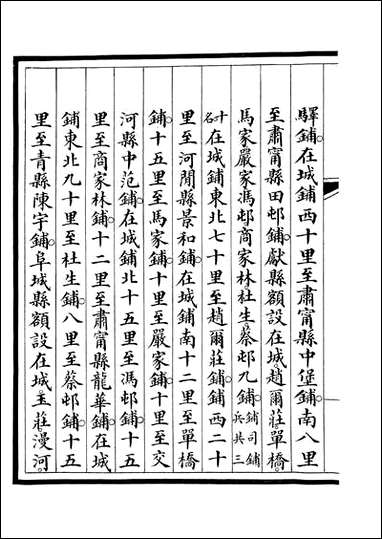 驛鋪在城鋪西十里至肅甯縣中堡鋪南八里
至肅甯縣田邨鋪獻縣額設在城趙爾莊單橋
馬家嚴家馮邨商家林杜生蔡邨九鋪鋪司鋪兵共三
十名在城鋪東北七十里至趙爾莊鋪鋪西二十
里至河閒縣景和鋪在城鋪南十二里至單橋
鋪十五里至馬家鋪十里至嚴家鋪十里至交
河縣中范鋪在城鋪北十五里至馮邨鋪十五
里至商家林鋪十二里至肅甯縣龍華鋪在城
鋪東北九十里至杜生鋪八里至蔡邨鋪十五
里至青縣陳宇鋪阜城縣額設在城玉莊漫河